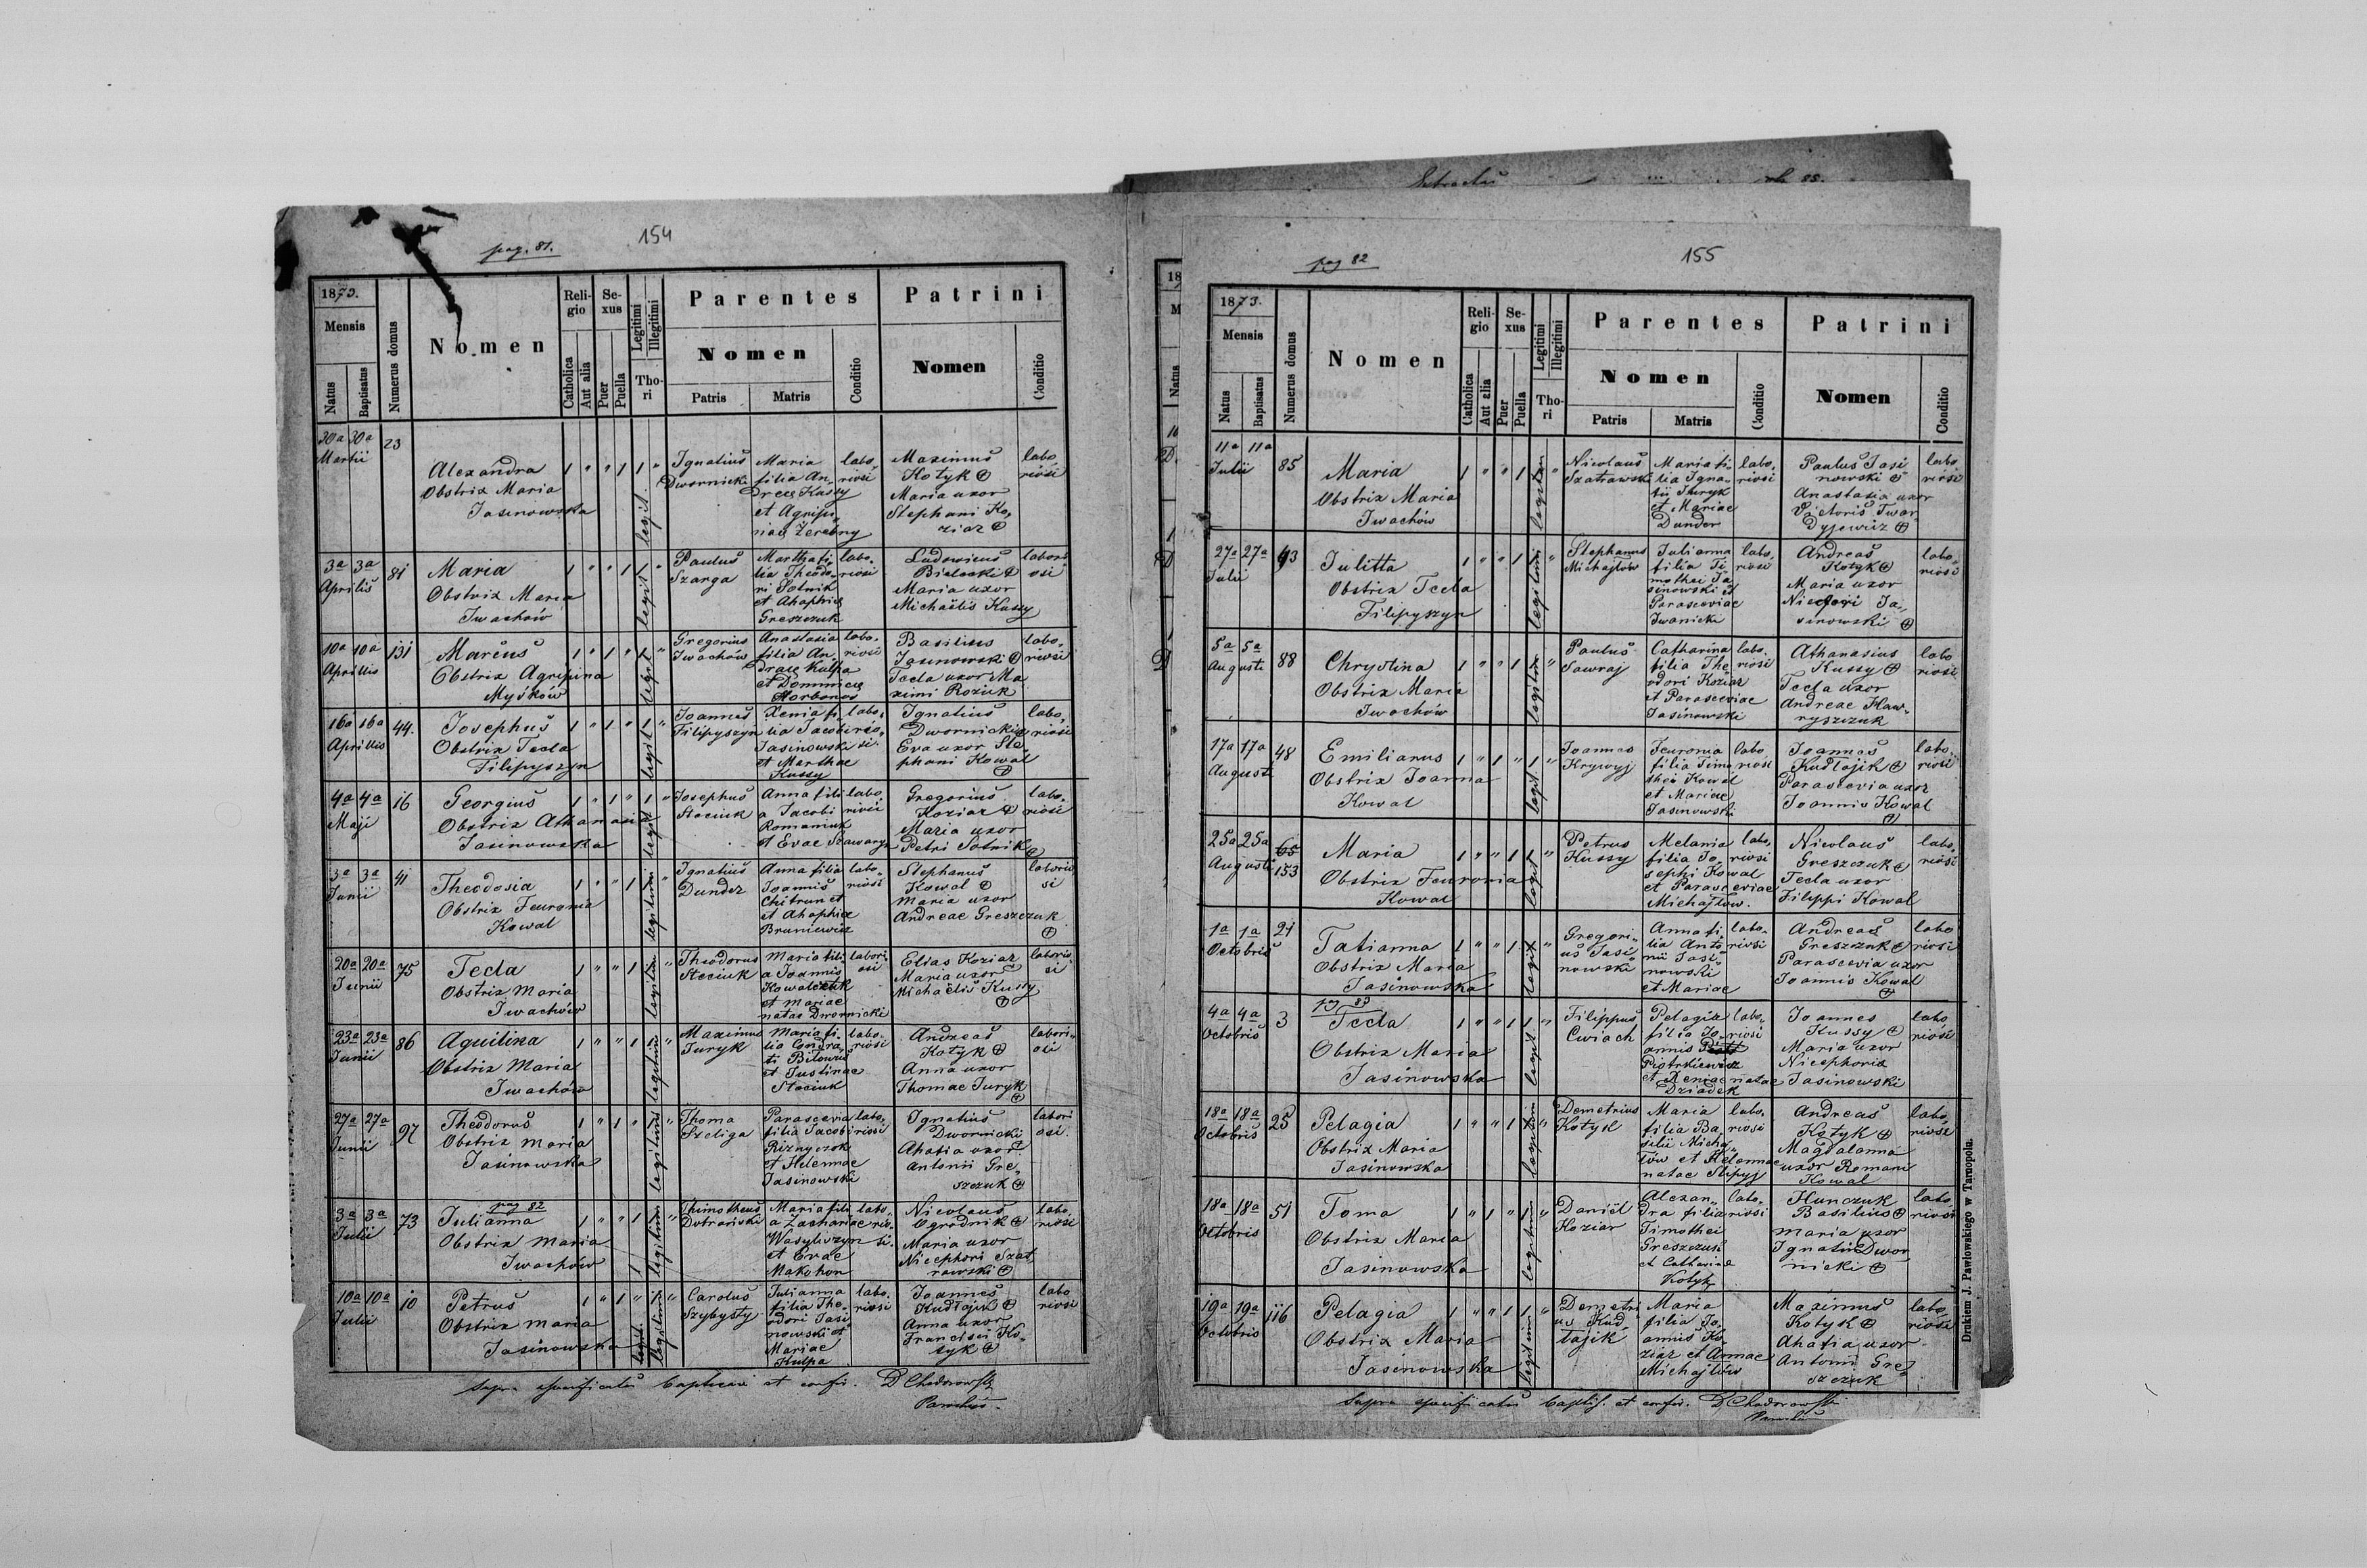 pag. 81.
154
1873.
Mensis
Natus
Baptisatus
Numerus domus
Nomen
Religio
Catholica
Aut alia
Sexus
Puer
Puella
Legitimi
Illegitimi
Thori
Parentes
Nomen
Patris
Matris
Conditio
Patrini
Nomen
Conditio
30a 30a 23
Martii
Alexandra
Obstrix Maria
Jasinowska
1 " " 1 1 "
legit.
Ignatius
Dwornicki
Maria
filia An,
dreae Kussy
et Agripi,
nae Żerebny
labo,
riosi
Maximus
Kotyk
Maria uxor
Stephani Ko,
ziar
labo
riosi
3a 3a 81
Aprilis
Maria
Obstrix Maria
Iwachów
1 " " 1 1 "
legit
Paulus
Szarga
Martha fi,
lia Theodo,
ri Sotnik
et Ahaphiae
Greszczuk
labo,
riosi
Ludovicus
Bielecki
Maria uxor
Michaëlis Kussy
labori
osi
10a 10a 131
Aprilis
Marcus
Obstrix Agripina
Myśków
1 " 1 " 1 "
legit
Gregorius
Iwachów
Anastasia
filia An,
dreae Kulpa
et Dominicae
Horbonos
labo,
riosi
Basilius
Jasinowski
Tecla uxor Ma
ximi Roziuk
labo,
riosi
16a 16a 44.
Aprilis
Josephus
Obstrix Tecla
Filipyszyn
1 " 1 " 1 "
legit
Joannes
Filipyszyn
Xenia fi,
lia Jacobi
Jasinowski
et Marthae
Kussy
labo,
rio,
si.
Ignatius
Dwornicki
Eva uxor Ste,
phani Kowal
labo,
riosi
4a 4a 16
Maji
Georgius
Obstrix Athanasia
Jasinowska
1 " 1 " 1 "
legit
Josephus
Steciuk
Anna fili
a Jacobi
Romaniuk
et Evae Szawaryn
labo
riosi
Gregorius
Koziar
Maria uxor
Petri Sotnik
labo,
riosi
3a 3a 41
Junii
Theodosia
Obstrix Feuronia
Kowal
1 " " 1 1 "
legitimi
Ignatius
Dunder
Anna filia
Joannis
Chitrun et
et Ahaphiae
Bruniewicz
labo,
riosi
Stephanus
Kowal
Maria uxor
Andreae Greszczuk
laborio
si
20a 20a 75
Junii
Tecla
Obstrix Maria
Iwachów
1 " " 1 1 "
legitim
Theodorus
Steciuk
Maria fili
a Joannis
Kowalczuk
et Mariae
natae Dwornicki
labori
osi
Elias Koziar
Maria uxor
Michaëlis Kussy
laborio
si
23a 23a 86
Junii
Aquilina
Obstrix Maria
Iwachów
1 " " 1 1 "
legitimi
Maximus
Juryk
Maria fi,
lia Condra,
ti Bilowus
et Justinae
Steciuk
labo,
riosi
Andreas
Kotyk
Anna uxor
Thomae Juryk
labori,
osi
27a 27a 97
Junii
Theodorus
Obstrix Maria
Jasinowska
1 " 1 " 1 "
legitimi
Thoma
Szeliga
Parascevia
filia Jacobi
Riznyczok
et Helennae
Jasinowski
labo,
riosi
Ignatius
Dwornicki
Ahafia uxor
Antonii Gre,
szczuk
labori
osi.
3a 3a 73
Julii
pag 82
Julianna
Obstrix Maria
Iwachów
1 " " 1 1 "
legitimi
Thimotheus
Dobrański
Maria fili
a Zachariae
Wasylczyn
et Evae
Makohon
labo,
rio,
si.
Nicolaus
Ogrodnik
Maria uxor
Nicephori Szat
rowski
labo,
riosi
10a 10a 10
Julii
Petrus
Obstrix Maria
Jasinowska
1 " 1 " 1 "
legitimi
Carolus
Szybysty
Julianna
filia The,
odori Jasi
nowski et
Mariae
Kulpa
labo,
riosi
Joannes
Kudłajik
Anna uxor
Francisci Ko,
tyk
labo
riosi
Supra specificatus baptisavi et confir. D Chodorowski
Parochus.
pag 82
155
1873.
Mensis
Natus
Baptisatus
Numerus domus
Nomen
Religio
Catholica
Aut alia
Sexus
Puer
Puella
Legitimi
Illegitimi
Thori
Parentes
Nomen
Patris
Matris
Conditio
Patrini
Nomen
Conditio
11a 11a 85
Julii
Maria
Obstrix Maria
Iwachów
1 " " 1 1 "
legitim
Nicolaus
Szatrawski
Maria fi,
lia Igna,
tii Juryk
et Mariae
Dunder
labo,
riosi
Paulus Jasi
nowski
Anastasia uxor
Victoris Twar
dyjewicz
labo
riosi
27a 27a 93
Julii
Julitta
Obstrix Tecla
Filipyszyn
1 " " 1 1 "
legitimi
Stephanus
Michajłow
Julianna
filia Ti,
mothei Ja,
sinowski et
Parasceviae
Iwanicki
labo,
riosi
Andreas
Kotyk
Maria uxor
Nicefori Ja,
sinowski
labo,
riosi
5a 5a 88
Augusti
Chrystina
Obstrix Maria
Iwachów
1 " " 1 1 "
legitim
Paulus
Sawraj
Catharina
filia The
odori Koziar
et Parasceviae
Jasinowski
labo,
riosi
Athanasius
Kussy
Tecla uxor
Andreae Haw,
ryszczuk
labo
riosi
17a 17a 48
Augusti
Emilianus
Obstrix Joanna
Kowal
1 " 1 " 1 "
legit
Joannes
Krywyj
Feuronia
filia Timo
thei Kowal
et Mariae
Jasinowski
labo
riosi
Joannes
Kudłajik
Parascevia uxor
Joannis Kowal
labo,
riosi
25a 25a 65
Augusti 153
Maria
Obstrix Feuronia
Kowal
1 " " 1 1 "
legit
Petrus
Kussy
Melania
filia Jo,
sephi Kowal
et Parasceviae
Michajłow.
labo,
riosi
Nicolaus
Greszczuk
Tecla uxor
Filippi Kowal
labo,
riosi
1a 1a 21
Octobris
Tatianna
Obstrix Maria
Jasinowska
1 " " 1 1 "
legit
Gregori,
us Jasi
nowski
Anna fi,
lia Anto
nii Jasi,
nowski
et Mariae
labo,
riosi
Andreas
Greszczuk
Parascevia uxor
Joannis Kowal
labo
riosi
4a 4a 3
Octobris
pag 83
Tecla
Obstrix Maria
Jasinowska
1 " " 1 1 "
legit.
Filippus
Cwiach
Pelagia
filia Jo,
annis
Piotrkiewicz
et Xeniae natae
Dziadek
labo,
riosi
Joannes
Kussy
Maria uxor
Nicephoris
Jasinowski
labo
riosi
18a 18a 25
Octobris
Pelagia
Obstrix Maria
Jasinowska
1 " " 1 1 "
legitim
Demetrius
Kotyk
Maria
filia Ba,
silii Micha,
łów et Helennae
natae Slipyj
labo,
riosi
Andreas
Kotyk
Magdalanna
uxor Romani
Kowal
labo,
riosi
18a 18a 51
Octobris
Toma
Obstrix Maria
Jasinowska
1 " 1 " 1 "
legitim
Daniël
Koziar
Alexan,
dra filia
Timothei
Greszczuk
et Catharinae
Kotyk
labo,
riosi
Hunczuk
Basilius
Maria uxor
Ignatii Dwor
nicki
labo
riosi
19a 19a 116
Octobris
Pelagia
Obstrix Maria
Jasinowska
1 " " 1 1 "
legitimi
Demetri
us Kud
łajik
Maria
filia Jo,
annis Ko,
ziar et Annae
Michajłów
Maximus
Kotyk
Ahafia uxor
Antonii Gre,
szczuk
labo,
riosi
Supra specificatus baptis. et confir. D Chodorowski
Parochus
Drukiem J. Pawłowskiego w Tarnopolu.